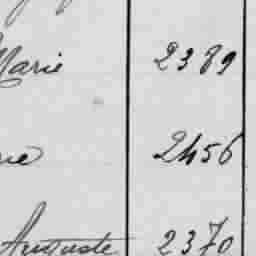 Marie 2389
ne 2456
Auguste 2370